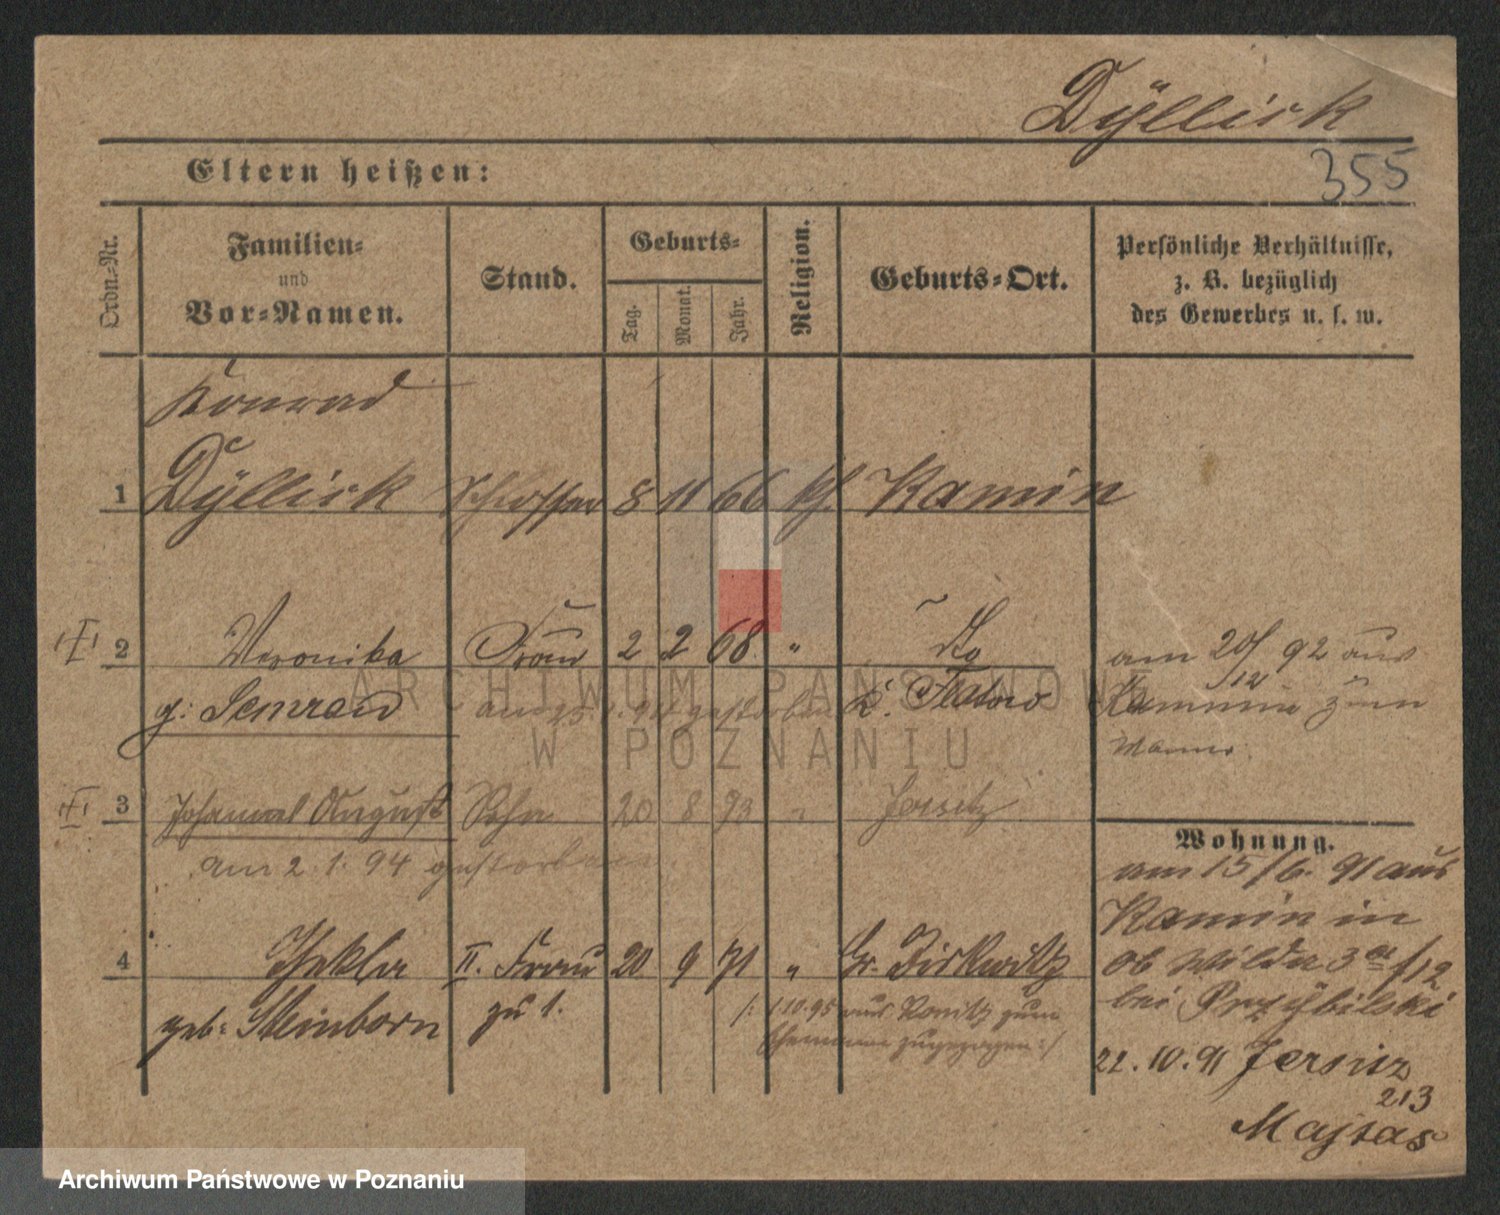 Dÿllick
355
Eltern heißen:
Ordn.=Nr.
Familien=
und
Vor=Namen.
Stand.
Geburts=
Tag.
Monat.
Jahr.
Religion.
Geburts=Ort.
Persönliche Verhältnisse,
z. B. bezüglich
des Gewerbes u. s. w.
Konrad
1 Dÿllick Schlosser 8 11 66 kf. Kamin
2 Veronika Frau 2 2 68 "
g: Semrau gestorben K. Flatow
am 20/12 92 aus
Kammin zum
Manne.
3 Johannes August Sohn 20 8 93 " Jersitz
am 2.1.94 gestorben
Wohnung.
am 15/6. 91 aus
Kamin in
Ob Wilda 3a f/12
bei Przybilski
4 Thekla II. Frau 20 9 71 "
geb: Steinborn zu 1.
/: 1.10.95 aus Konitz zum
Ehemann zugezogen :/
22.10.91 Jersitz
213
Majtas
ARCHIWUM PAŃSTWOWE
W POZNANIU
Archiwum Państwowe w Poznaniu